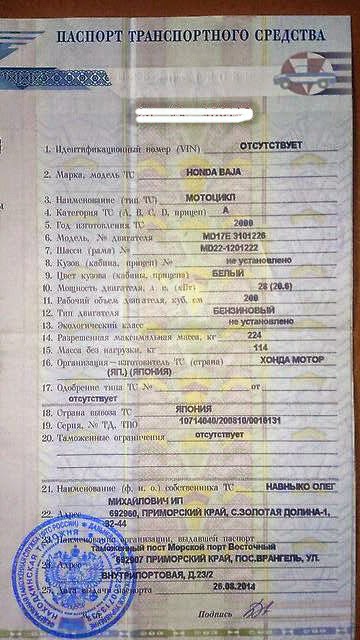 ПАСПОРТ ТРАНСПОРТНОГО СРЕДСТВА
1. Идентификационный номер (VIN) ОТСУТСТВУЕТ
2. Марка, модель ТС HONDA BAJA
3. Наименование (тип ТС) МОТОЦИКЛ
4. Категория ТС (А, В, С, D, прицеп) А
5. Год изготовления ТС 2000
6. Модель, № двигателя MD17E 3101226
7. Шасси (рама) № MD22-1201222
8. Кузов (кабина, прицеп) № не установлено
9. Цвет кузова (кабины, прицепа) БЕЛЫЙ
10. Мощность двигателя, л. с. (кВт) 28 (20.6)
11. Рабочий объем двигателя, куб. см 200
12. Тип двигателя БЕНЗИНОВЫЙ
13. Экологический класс не установлено
14. Разрешенная максимальная масса, кг 224
15. Масса без нагрузки, кг 114
16. Организация-изготовитель ТС (страна) ХОНДА МОТОР
(ЯП.) (ЯПОНИЯ)
17. Одобрение типа ТС № от
отсутствует
18. Страна вывоза ТС ЯПОНИЯ
19. Серия, № ТД, ТПО 10714040/200810/0018131
20. Таможенные ограничения отсутствует
21. Наименование (ф. и. о.) собственника ТС НАВНЫКО ОЛЕГ
МИХАЙЛОВИЧ ИП
22. Адрес 692960, ПРИМОРСКИЙ КРАЙ, С.ЗОЛОТАЯ ДОЛИНА-1,
32-44
23. Наименование организации, выдавшей паспорт
таможенный пост Морской порт Восточный
24. Адрес 692907 ПРИМОРСКИЙ КРАЙ, ПОС.ВРАНГЕЛЬ, УЛ.
ВНУТРИПОРТОВАЯ, Д.23/2
25. Дата выдачи паспорта 26.08.2014
Подпись
НАХОДКИНСКАЯ ТАМОЖНЯ